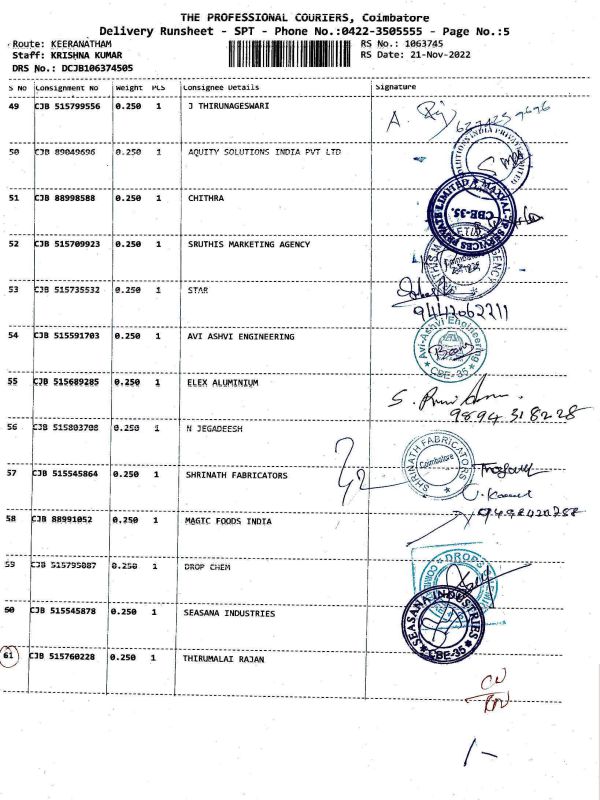 THE PROFESSIONAL COURIERS, Coimbatore
Delivery Runsheet - SPT - Phone No.:0422-3505555 - Page No.:5
Route: KEERANATHAM RS No.: 1063745
Staff: KRISHNA KUMAR RS Date: 21-Nov-2022
DRS No.: DCJB106374505
S No Consignment No Weight PCS Consignee Details Signature
49 CJB 515799556 0.250 1 J THIRUNAGESWARI
50 CJB 89049696 0.250 1 AQUITY SOLUTIONS INDIA PVT LTD
51 CJB 88998588 0.250 1 CHITHRA
PRIVATE LIMITED
CBE-35.
52 CJB 515709923 0.250 1 SRUTHIS MARKETING AGENCY
53 CJB 515735532 0.250 1 STAR
9442062211
54 CJB 515591703 0.250 1 AVI ASHVI ENGINEERING
Avi-Ashvi Engineering
CBE-35
55 CJB 515689285 0.250 1 ELEX ALUMINIUM
9894318228
56 CJB 515803708 0.250 1 N JEGADEESH
SHRINATH FABRICATORS
Coimbatore
57 CJB 515545864 0.250 1 SHRINATH FABRICATORS
58 CJB 88991052 0.250 1 MAGIC FOODS INDIA
59 CJB 515795087 0.250 1 DROP CHEM
DROPS
60 CJB 515545878 0.250 1 SEASANA INDUSTRIES
SEASANA INDUSTRIES
CBE-35
61 CJB 515760228 0.250 1 THIRUMALAI RAJAN